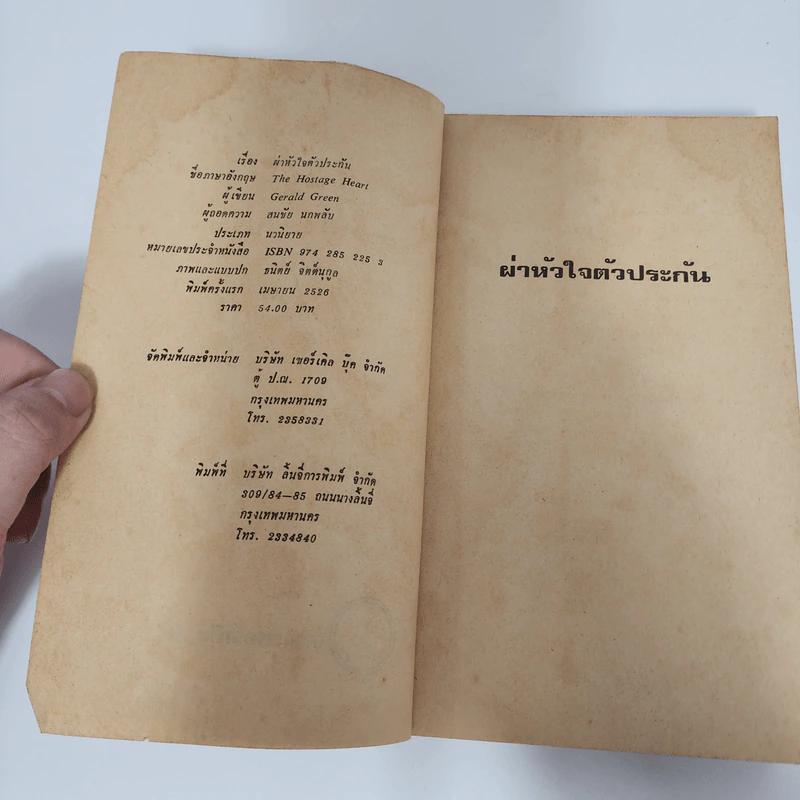 เรื่อง ผ่าหัวใจตัวประกัน
ชื่อภาษาอังกฤษ The Hostage Heart
ผู้เขียน Gerald Green
ผู้ถอดความ สนชัย นกพลับ
ประเภท นวนิยาย
หมายเลขประจำหนังสือ ISBN 974 285 225 3
ภาพและแบบปก ธนิตย์ จิตต์นุกูล
พิมพ์ครั้งแรก เมษายน 2526
ราคา 54.00 บาท
จัดพิมพ์และจำหน่าย บริษัท เซอร์เคิล บุ๊ค จำกัด
ตู้ ป.ณ. 1709
กรุงเทพมหานคร
โทร. 2358331
พิมพ์ที่ บริษัท ลิ้นจี่การพิมพ์ จำกัด
309/84—85 ถนนนางลิ้นจี่
กรุงเทพมหานคร
โทร. 2334840
ผ่าหัวใจตัวประกัน